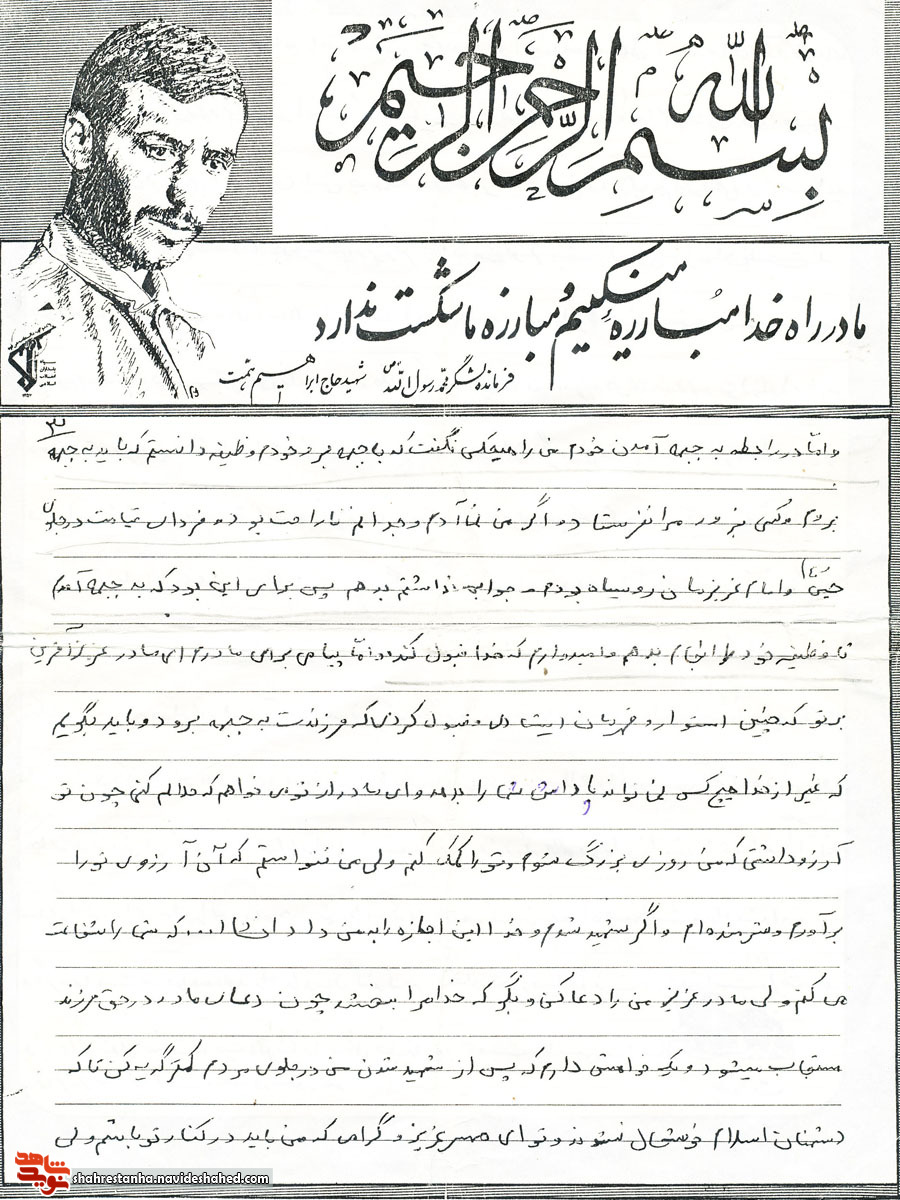 بسم الله الرحمن الرحیم
ما در راه خدا مبارزه میکنیم و مبارزه ما شکست ندارد
فرمانده لشگر محمد رسول الله (ص) شهید حاج ابراهیم همت
۳
و امّا در رابطه به جبهه آمدن خودم من را هیچکس نگفت که به جبهه برو خودم وظیفه دانستم که باید به جبهه
بروم و کسی بزور مرا نفرستاده و اگر من نمی آمدم وجدانم ناراحت بود و فردای قیامت در جلوی
حسین (ع) و امام عزیزمان روسیاه بودم و جوابی نداشتم بدهم پس برای این بود که به جبهه آمدم
تا وظیفه خود را انجام بدهم و امیدوارم که خدا قبول کند و امّا پیامی برای مادرم ای مادر عزیز آفرین
بر تو که چنین استوار و قهرمان ایستادی و قبول کردی که فرزندت به جبهه برود و باید بگویم
که غیر از خدا هیچ کس نمی تواند پاداش شما را بدهد و ای مادر از تو می خواهم که حلالم کنی چون تو
آرزو داشتی که من روزی بزرگ شوم و تو را کمک کنم ولی من نتوانستم که آن آرزوی تو را
برآورم و شرمنده ام و اگر شهید شدم و خدا این اجازه را به من داد انشاالله که شما را شفاعت
می کنم ولی مادر عزیز من را دعا کن و بگو که خدا مرا ببخشد چون دعای مادر در حق فرزند
مستجاب میشود و یک خواهشی دارم که پس از شهید شدن من در جلوی مردم کمتر گریه کن تا که
دشمنان اسلام خوشحال نشوند و تو ای همسر عزیز و گرامی که من باید در کنار تو باشم ولی
نوید شاهد
shahrestanha.navideshahed.com